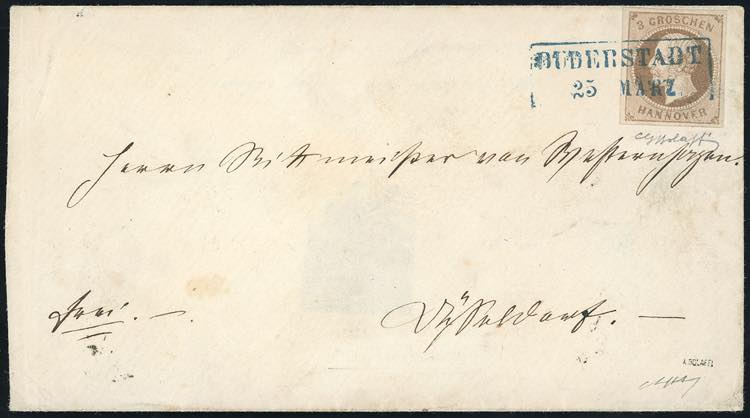 3 GROSCHEN
DUDERSTADT
25 MÄRZ
HANNOVER
Herrn Rittmeister von Westernhagen.
frei. —
Düsseldorf. —
A. BOLAFFI